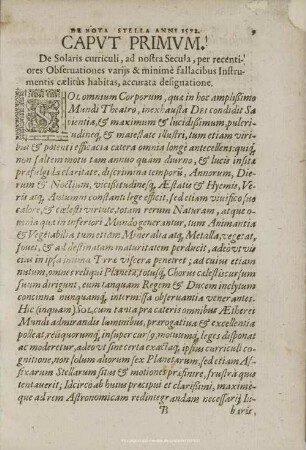 DE NOVA STELLA ANNI 1572. 9
CAPVT PRIMVM.
De Solaris curriculi, ad nostra Secula, per recenti-
ores Obseruationes varijs & minimè fallacibus Instru-
mentis cælitùs habitas, accurata designatione.
SOL omnium Corporum, quæ in hoc amplissimo
Mundi Theatro, inexhausta DEI condidit Sa-
pientia, & maximum & lucidissimum, pulcri-
tudineq́, & maiestate illustri, tum etiam viri-
bus & potenti efficacia cætera omnia longè antecellens: quiq́,
non saltem motu tam annuo quàm diurno, & lucis insitæ
præfulgida claritate, discrimina temporũ, Annorum, Die-
rum & Noctium, vicißitudinesq́, Æstatis & Hyemis, Ve-
ris atq́, Autumni constanti lege efficit, sed etiam viuifico suo
calore, & cœlesti virtute, totam rerum Naturam, atque om-
nia quæ in inferiori Mundo generantur, tum Animantia
& Vegetabilia, tum etiam Mineralia atq́, Metalla, vegetat,
fouet, & ad destinatam maturitatem perducit, adeò vt vis
eius in ipsa intima Terræ viscera penetret; ad cuius etiam
nutum, omnes reliqui Planetæ, totusq́, Chorus cælestis cursum
suum dirigunt, eum tanquam Regem & Ducem inclytum
concinna nunquamq́, intermissa obseruantia venerantes.
Hic (inquam) SOL, cum tanta præ cæteris omnibus Ætherei
Mundi admirandis luminibus, prærogatiua & excellentia
polleat, reliquorumq́, insuper cursꝰ, motusmq́, leges disponat
ac moderetur, adeò vt sine certa exactaq́, ipsius curriculi co-
gnitione, non solum aliorum sex Planetarum, sed etiam Af-
fixarum Stellarum situs & motiones præfinire, frustra quis
tentauerit; Idcircò ab huius præcipui et clarißimi, maximè-
que ad rem Astronomicam redintegrandam necessarij Lu-
B minaris,